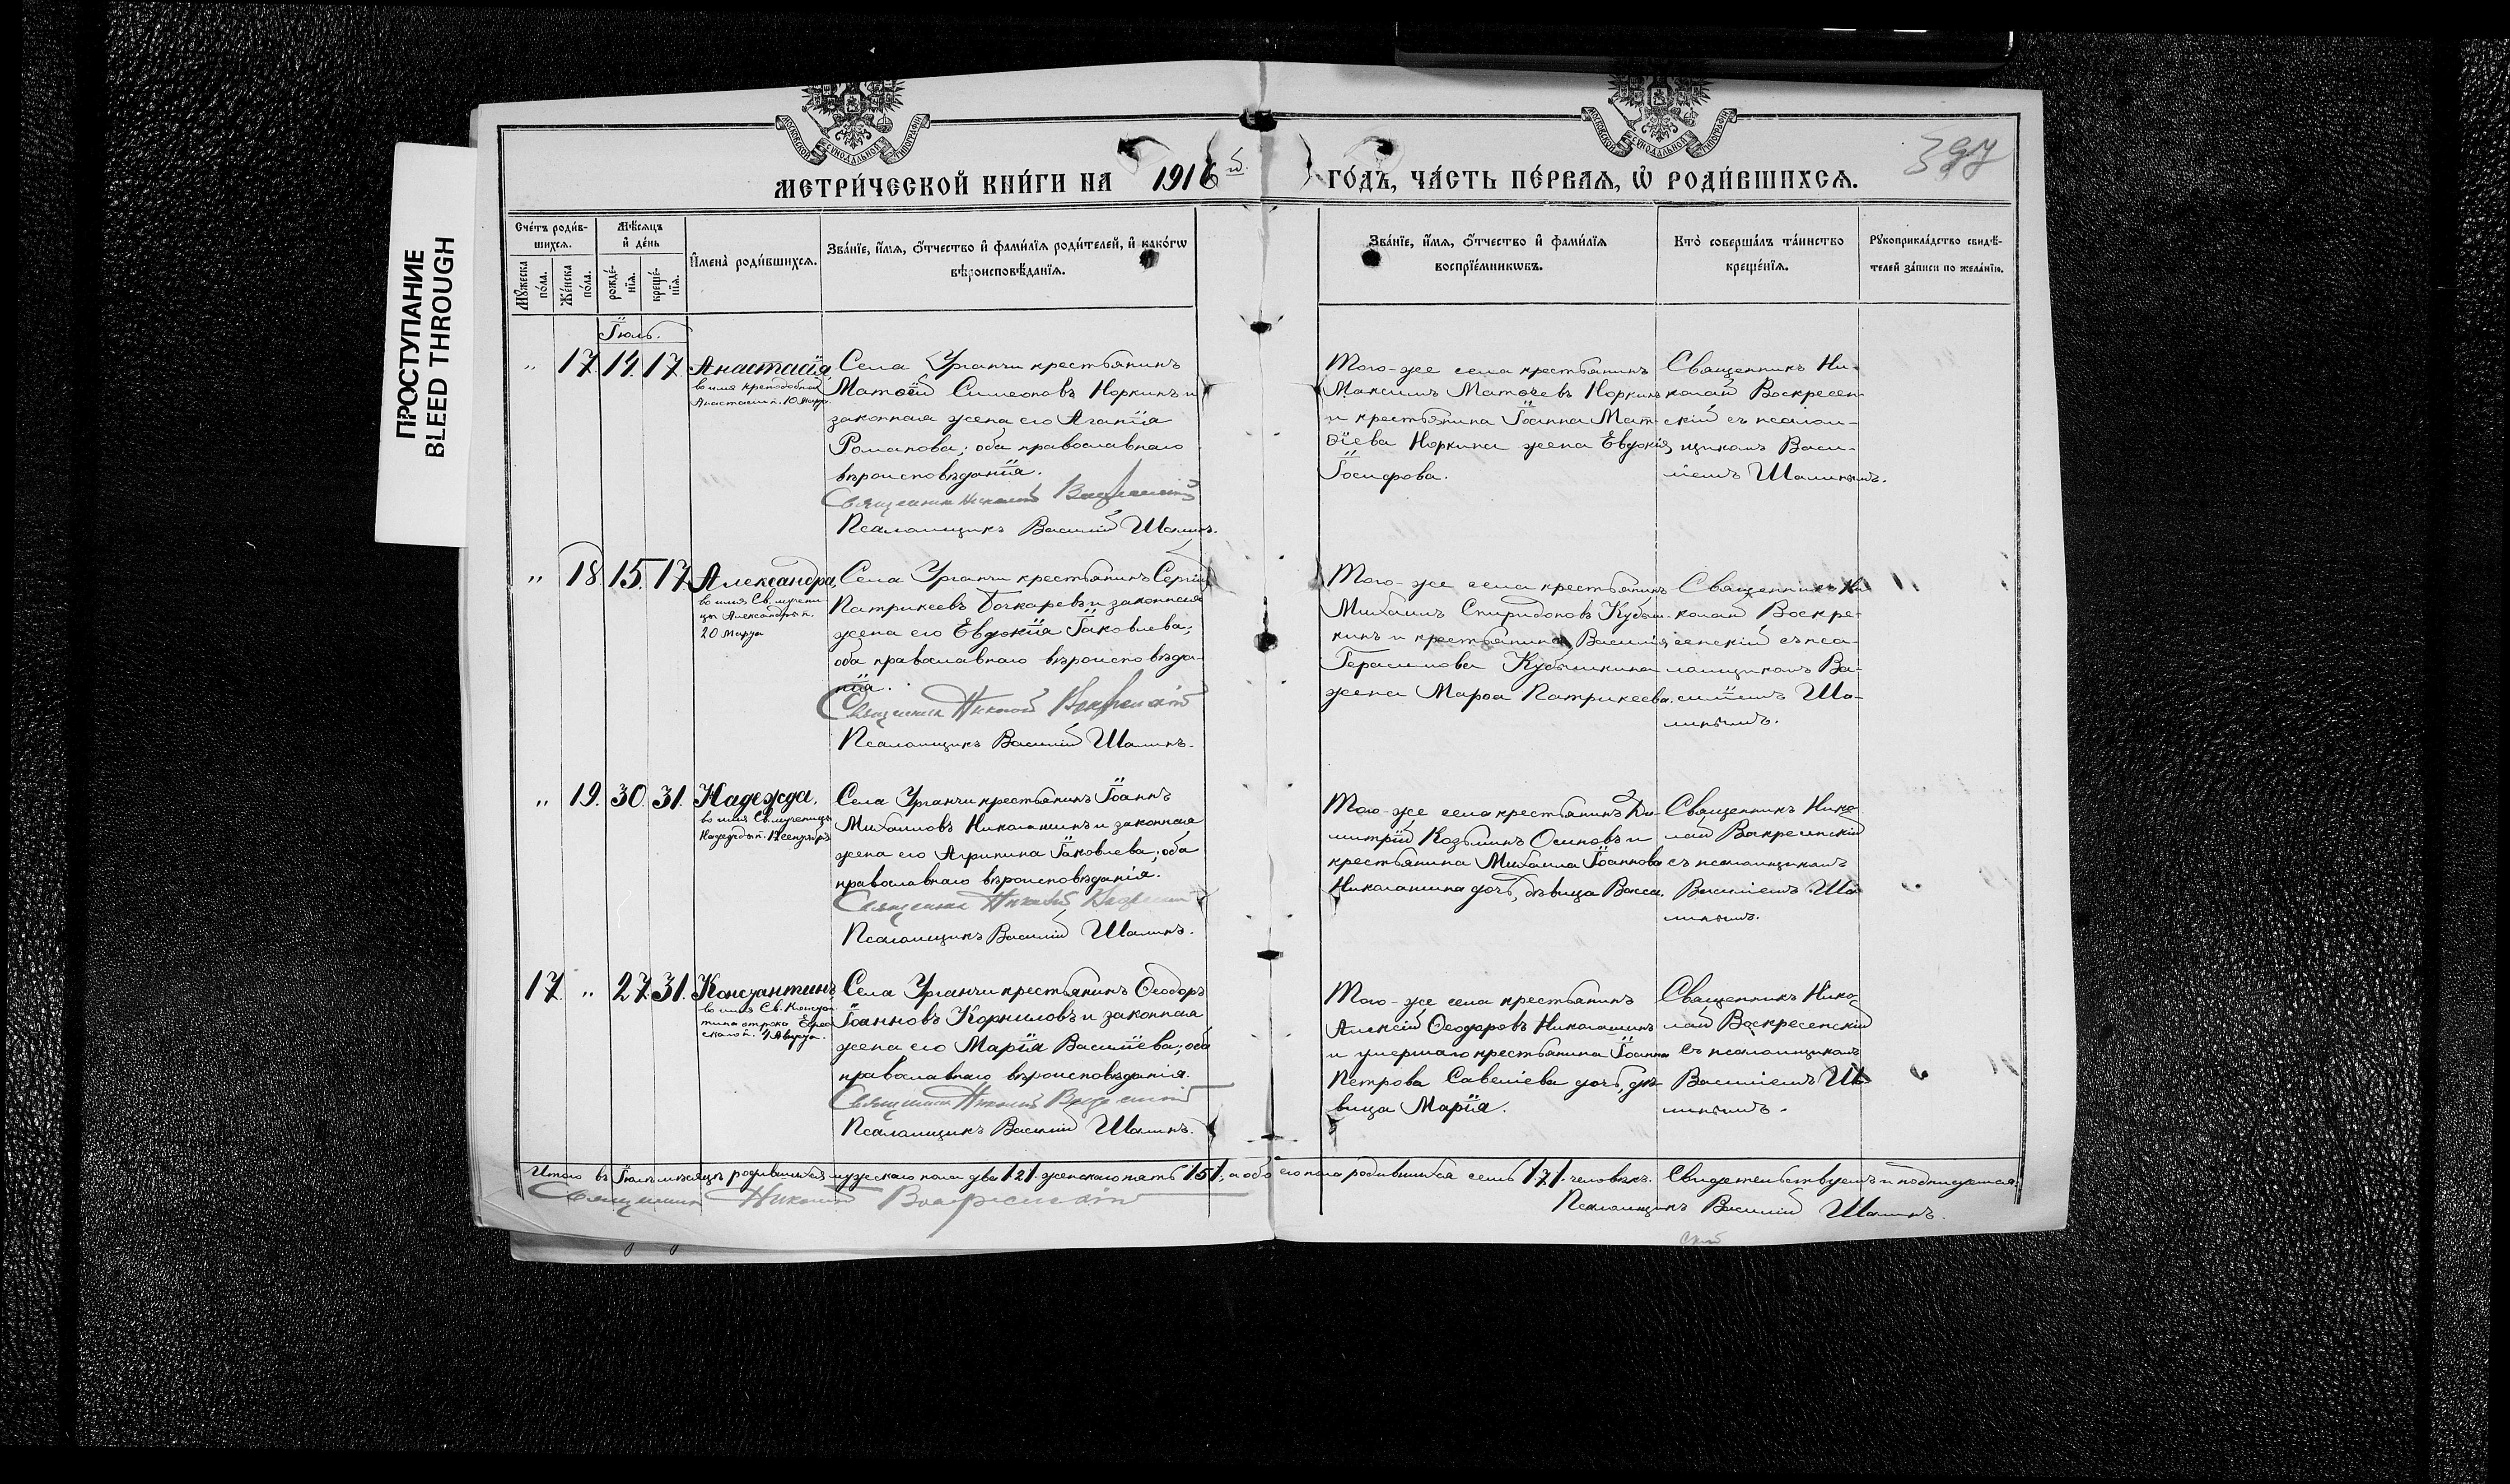 ПРОСТУПАНИЕ
BLEED THROUGH
МОСКОВСКОЙ СѴНОДАЛЬНОЙ ТИПОГРАФІИ
МОСКОВСКОЙ СѴНОДАЛЬНОЙ ТИПОГРАФІИ
МЕТРИ́ЧЕСКОЙ КНИ́ГИ НА 1916й
ГО́ДЪ, ЧА́СТЬ ПЕ́РВАЯ, Ѡ҆ РОДИ́ВШИХСЯ.
Сче́тъ роди́в-
шихся.
Мꙋ́жеска
по́ла.
Же́нска
по́ла.
Мѣ́сяцъ
и҆ де́нь
рожде́-
нїя.
креще́-
нїя.
И҆мена̀ роди́вшихся.
Зва́нїе, и҆́мя, ѻ҆́тчество и҆ фами́лїя роди́телей, и҆ како́гѡ
вѣроисповѣ́данїя.
Зва́нїе, и҆́мя, ѻ҆́тчество и҆ фами́лїя
воспрїе́мникѡвъ.
Кто̀ соверша́лъ та́инство
креще́нїя.
Рꙋкоприкла́дство свидѣ́-
телей за́писи по жела́нїю.
Іюль.
" 17. 14. 17. Анастасія,
во имя преподобной
Анастасіи п. 10 марта
Села Урганчи крестьянинъ
Матѳей Симеоновъ Норкинъ и
законная жена его Агапія
Романова; оба православнаго
вѣроисповѣданія.
Священникъ Николай Воскресенскій
Псаломщикъ Василій Шалинъ.
Того-же села крестьянинъ
Максимъ Матѳеевъ Норкинъ
и крестьянина Іоанна Мат-
ѳіева Норкина жена Евдокія
Іосифова.
Священникъ Ни-
колай Воскресен-
скій съ псалом-
щикомъ Васи-
ліемъ Шалинымъ.
" 18. 15. 17. Александра,
во имя Св. мучени-
цы Александры п.
20 марта
Села Урганчи крестьянинъ Сергій
Патрикеевъ Бочкаревъ и законная
жена его Евдокія Іаковлева;
оба православнаго вѣроисповѣда-
нія.
Священникъ Николай Воскресенскій
Псаломщикъ Василій Шалинъ.
Того-же села крестьянинъ
Михаилъ Спиридоновъ Кубыш-
кинъ и крестьянина Василія
Герасимова Кубышкина
жена Марѳа Патрикеева.
Священникъ Ни-
колай Воскре-
сенскій съ пса-
ломщикомъ Ва-
силіемъ Ша-
линымъ.
" 19. 30. 31. Надежда,
во имя Св. мученицы
Надежды п. 17 сентября
Села Урганчи крестьянинъ Іоаннъ
Михаиловъ Николашинъ и законная
жена его Агрипина Іаковлева; оба
православнаго вѣроисповѣданія.
Священникъ Николай Воскресенскій
Псаломщикъ Василій Шалинъ.
Того-же села крестьянинъ Ди-
митрій Козьминъ Осиповъ и
крестьянина Михаила Іоаннова
Николашина дочь, дѣвица Васса.
Священникъ Нико-
лай Воскресенскій
съ псаломщикомъ
Василіемъ Ша-
линымъ.
17. " 27. 31. Константинъ,
во имя Св. Констан-
тина отрока Ефес-
скаго п. 4 Августа.
Села Урганчи крестьянинъ Ѳеодоръ
Іоанновъ Корниловъ и законная
жена его Марія Василіева; оба
православнаго вѣроисповѣданія.
Священникъ Николай Воскресенскій
Псаломщикъ Василій Шалинъ.
Того-же села крестьянинъ
Алексій Ѳеодоровъ Николашинъ
и умершаго крестьянина Іоанна
Петрова Савеліева дочь, дѣ-
вица Марія.
Священникъ Нико-
лай Воскресенскій
съ псаломщикомъ
Василіемъ Ша-
линымъ.
Итого въ Іюлѣ мѣсяцѣ родившихся мужескаго пола два /2/. женскаго пять /5/, а обоего пола родившихся семь /7/. человѣкъ. Свидетельствуемъ и подписуемся:
Священникъ Николай Воскресенскій
Псаломщикъ Василій Шалинъ.